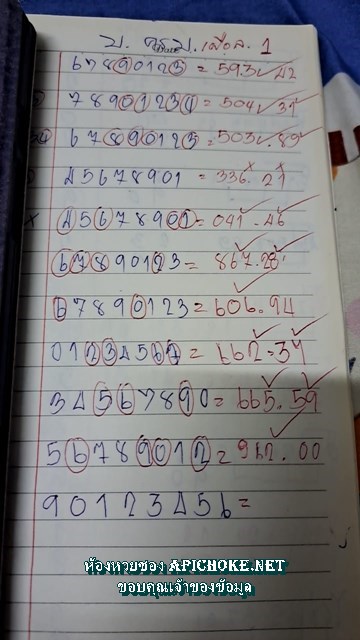 67890123 = 593 42
78901234 = 504 31
67890123 = 503.89
45678901 = 336.21
45678901 = 041.46
67890123 = 867.28
67890123 = 606.94
01234567 = 662.34
34567890 = 665.59
56789012 = 962.00
90123456 =
ห้องหวยซอง APICHOKE.NET
ขอบคุณเจ้าของข้อมูล